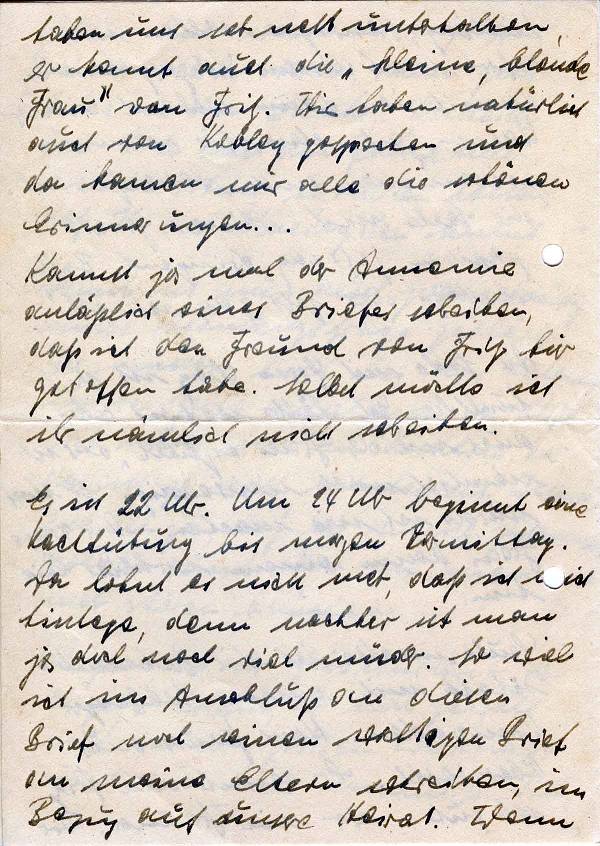 haben uns sehr nett unterhalten,
er kennt auch die „kleine, blonde
Frau" von Fritz. Wir haben natürlich
auch von gesprochen und
da kamen mir alle die schönen
Erinnerungen...
Kannst ja mal der Annemie
anläßlich eines Briefes schreiben,
daß ich den Freund von Fritz hier
getroffen habe. Selbst möchte ich
ihr nämlich nicht schreiben.
Es ist 22 Uhr. Um 24 Uhr beginnt eine
Nachtübung bis morgen Vormittag.
Da lohnt es nicht mehr, daß ich mich
hinlege, denn nachher ist man
ja doch noch viel müder. So will
ich im Anschluß an diesen
Brief noch einen wichtigen Brief
an meine Eltern schreiben, im
Bezug auf unsere Heirat. Wenn